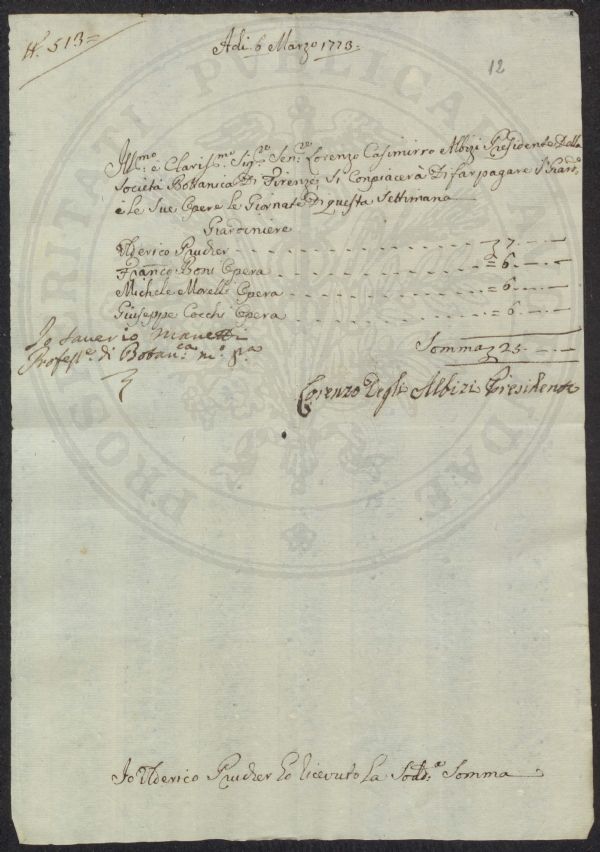 N.° 513=
Adi 6 Marzo 1773=
12
Ill:mo e Claris:mo Sig:re Sen:re Lorenzo Casimirro Albizi Presidente Della
Società Bottanica Di Firenze; Si Conpiacerà Di far pagare l'Giard:e
e le Sue Opere le Giornate Di questa Settimana
Giardiniere
Ulderico Prucher - - - 7 - -
Franco: Boni Opera - - - = 6 - -
Michele Morelli Opera - - - = 6 - -
Giuseppe Cocchi Opera - - - = 6 - -
Somma 25 - -
Io Saverio Manetti
Profess:e di Botan:ca m:o p:a
Lorenzo Degli Albizi Presidente
Io Ulderico Prucher ho riceuto La Sodd:a Somma
PROSPERITATI PUBLICAE AUGENDAE